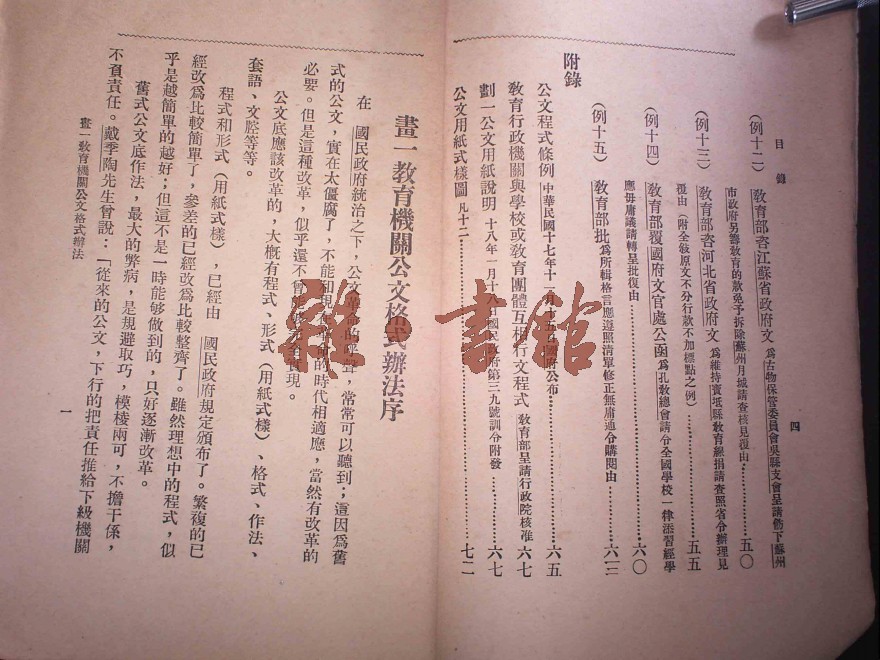 目錄
四
（例十二）教育部咨江蘇省政府文 爲古物保管委員會吳縣支會呈請飭下蘇州
市政府另籌教育的款免予拆除蘇州月城請查核見覆由…………五〇
（例十三）教育部咨河北省政府文 爲維持寶坻縣教育經捐請查照省令辦理見
覆由（附全錄原文不分行款不加標點之例）…………五五
（例十四）教育部覆國府文官處公函 爲孔教總會請令全國學校一律添習經學
應毋庸議請轉呈批復由…………六〇
（例十五）教育部批 爲所輯格言應遵照清單修正無庸通令購閱由…………六三
附錄
公文程式條例 中華民國十七年十一月十五日國府公布…………六五
教育行政機關與學校或教育團體互相行文程式 教育部呈請行政院核准 六七
劃一公文用紙說明 十八年一月十八日國民政府第三九號訓令附發…………六七
公文用紙式樣圖 凡十二…………七二
畫一教育機關公文格式辦法序
在 國民政府統治之下，公文革命的呼聲，常常可以聽到；這因爲舊
式的公文，實在太僵腐了，不能和現在的時代相適應，當然有改革的
必要。但是這種改革，似乎還不曾能實現。
公文底應該改革的，大概有程式、形式（用紙式樣）、格式、作法、
套語、文腔等等。
程式和形式（用紙式樣），已經由 國民政府規定頒布了。繁複的已
經改爲比較簡單了，參差的已經改爲比較整齊了。雖然理想中的程式，似
乎是越簡單的越好；但這不是一時能够做到的，只好逐漸改革。
舊式公文底作法，最大的弊病，是規避取巧，模棱兩可，不擔干係，
不負責任。戴季陶先生曾說：「從來的公文，下行的把責任推給下級機關
畫一教育機關公文格式辦法
一
雜·書館